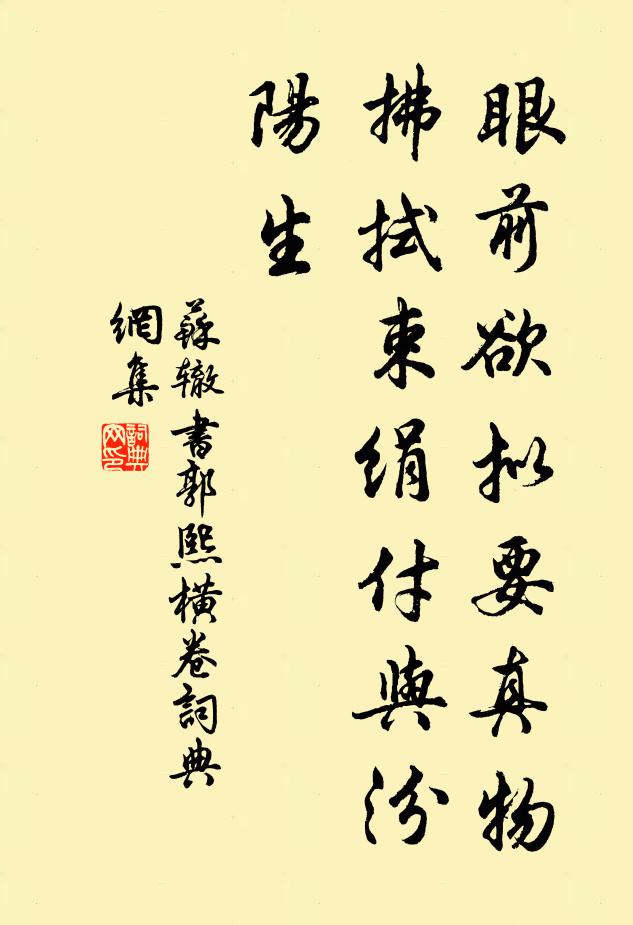 眼前欲擬要真物
拂拭束絹付與汾
陽生
蘇轍書郭熙橫卷詞典
網集
詞典
网印